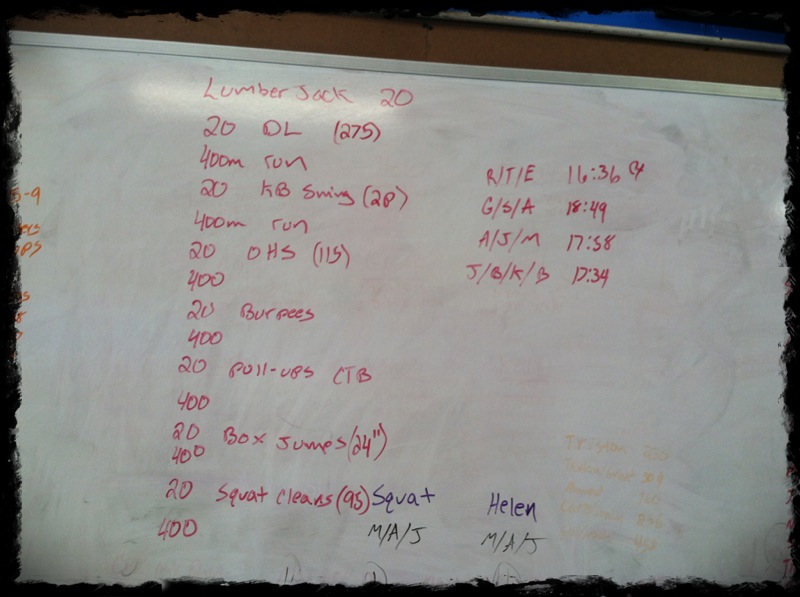 LumberJack 20
20 DL (275)
400m run
20 KB Swing (2P)
400m run
20 OHS (115)
400
20 Burpees
400
20 Pull-ups CTB
400
20 Box Jumps (24")
400
20 Squat Cleans (95)
400
R/T/E 16:36
G/S/A 18:49
A/J/M 17:58
J/B/K/B 17:34
Squat
M/A/J
Helen
M/A/J
5-9
Tristan